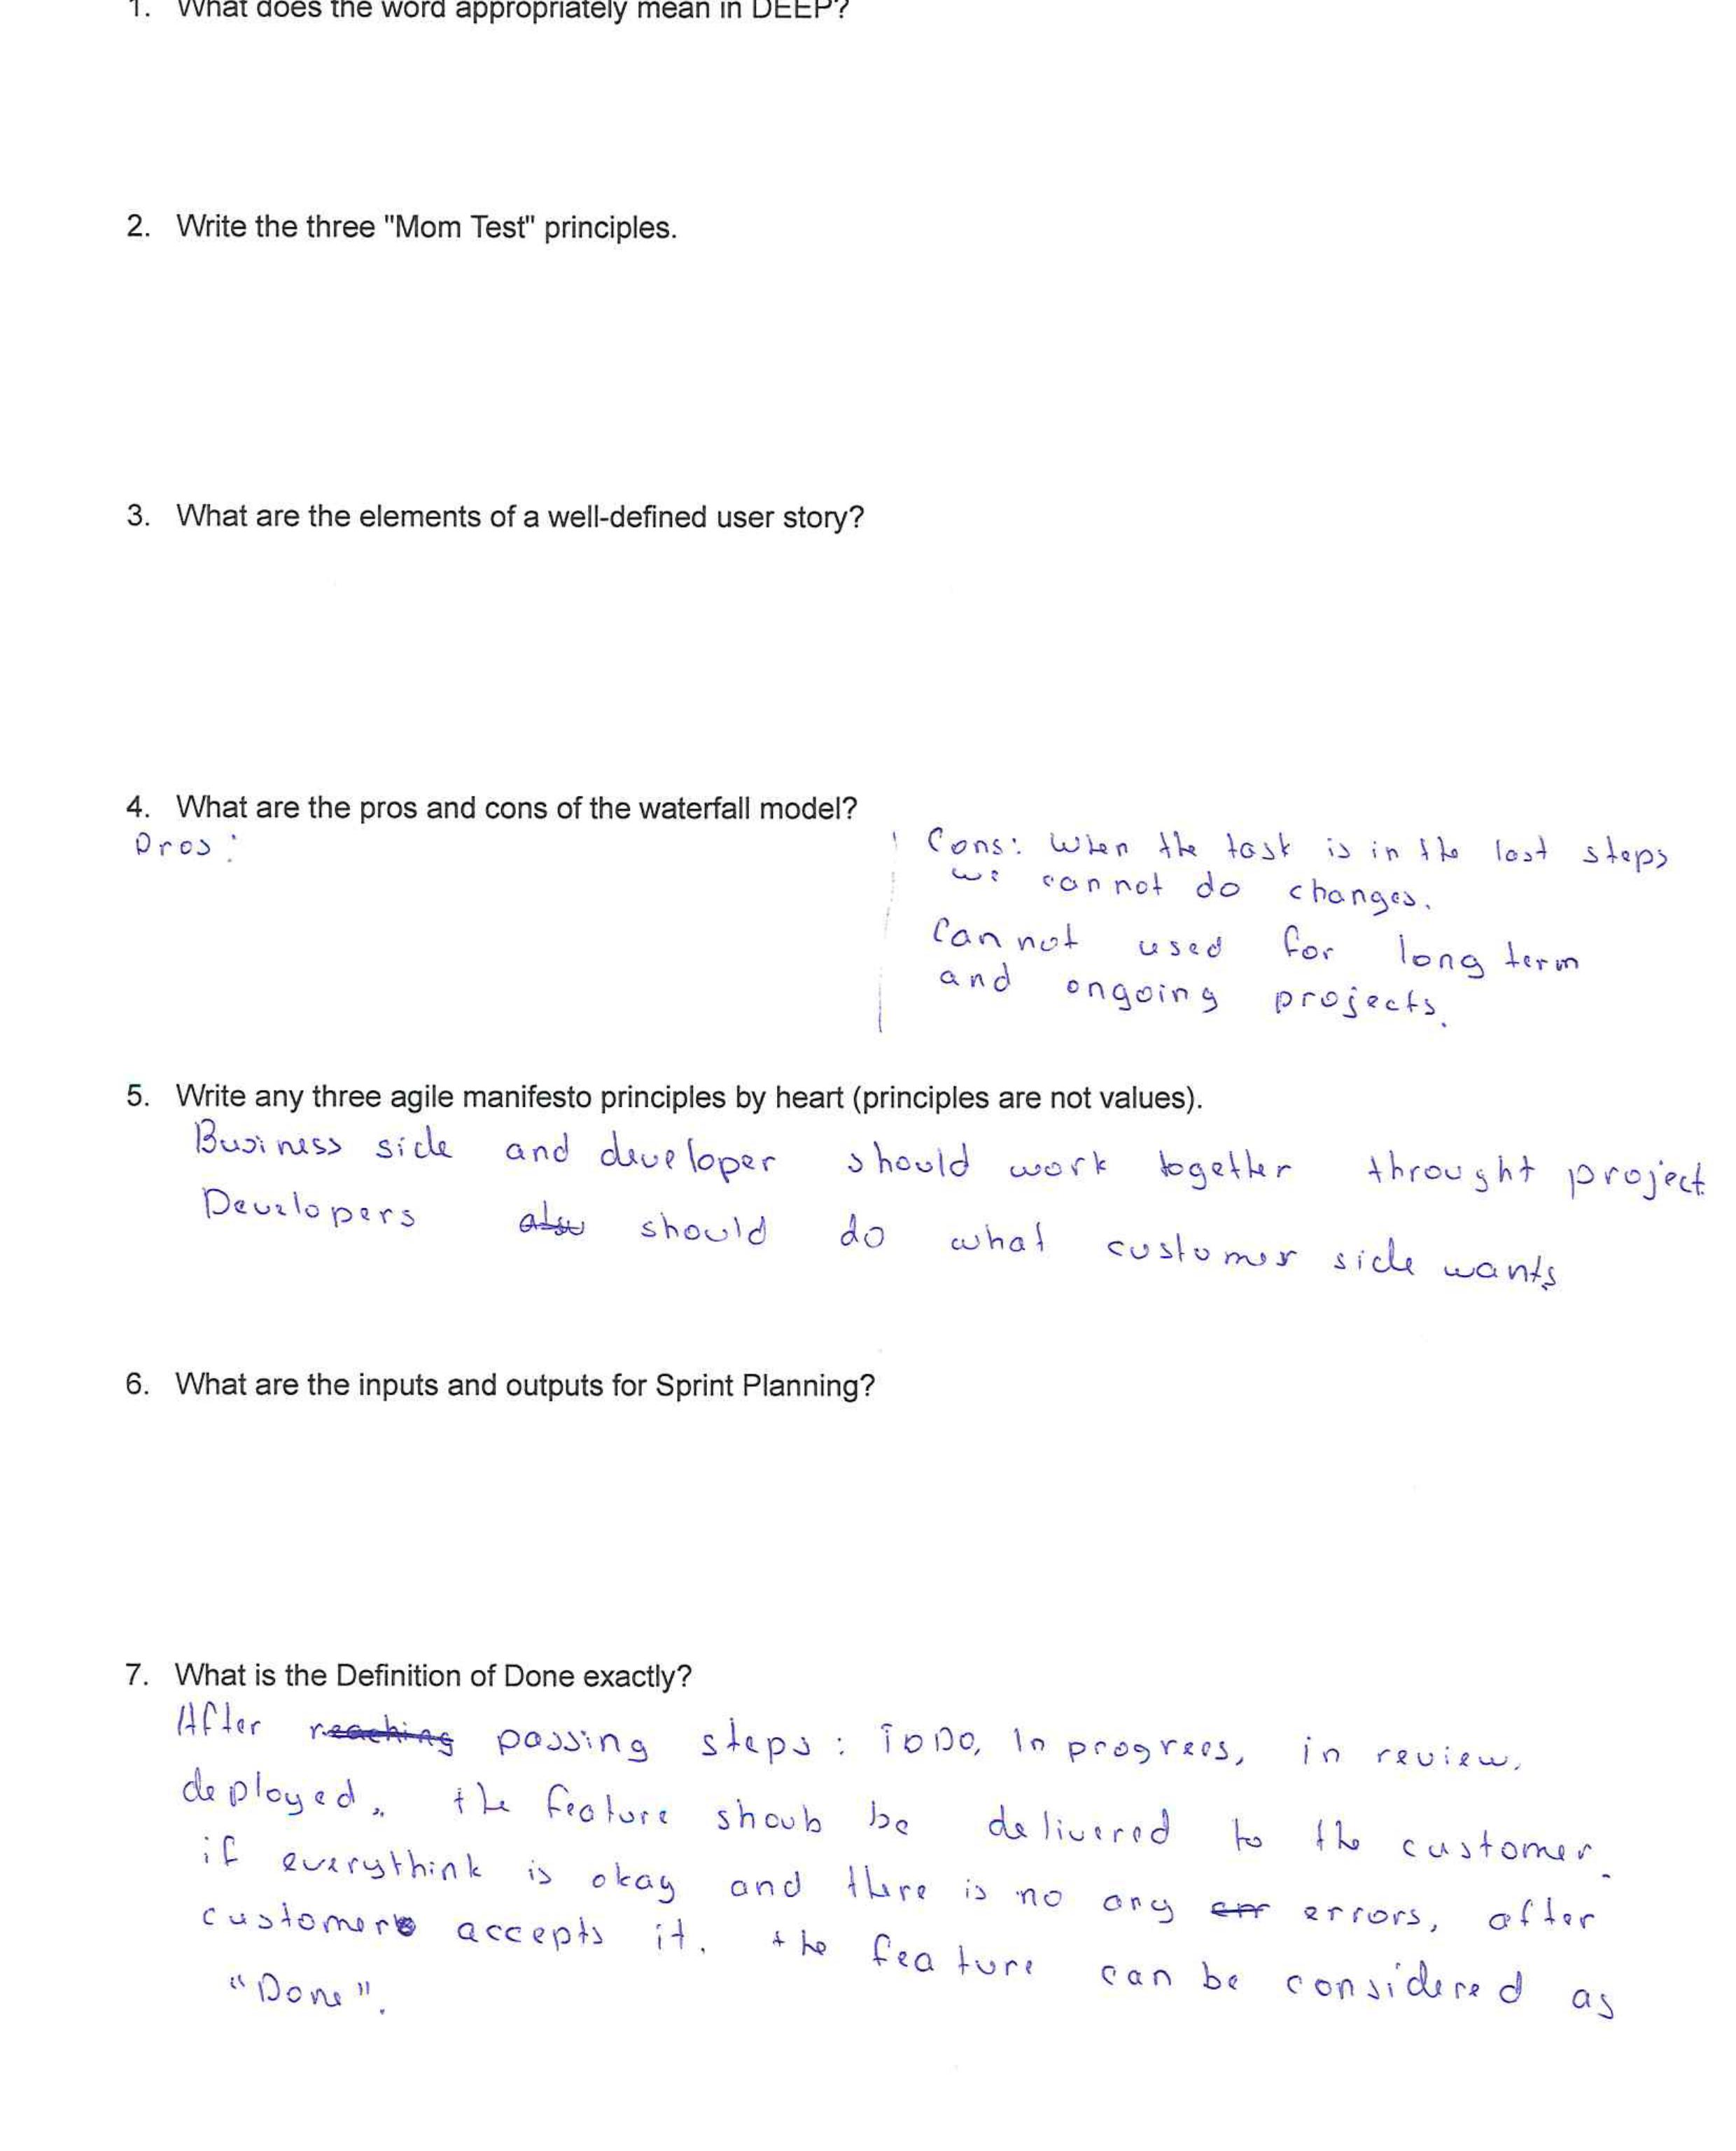 1. What does the word appropriately mean in DEEP?
2. Write the three "Mom Test" principles.
3. What are the elements of a well-defined user story?
4. What are the pros and cons of the waterfall model?
Pros:
Cons: When the task is in the last steps
we cannot do changes.
Cannot used for long term
and ongoing projects.
5. Write any three agile manifesto principles by heart (principles are not values).
Business side and developer should work together throught project.
Developers also should do what customer side wants.
6. What are the inputs and outputs for Sprint Planning?
7. What is the Definition of Done exactly?
After reaching passing steps: ToDo, In progrees, in review,
deployed, the feature shoub be delivered to the customer.
if everythink is okay and there is no any err errors, after
customer accepts it. the feature can be considered as
"Done".